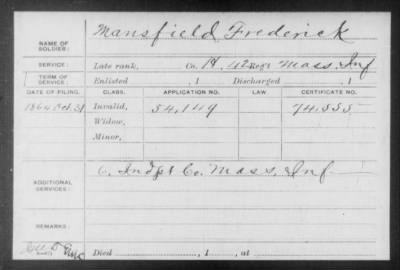 NAME OF SOLDIER: Mansfield Frederick
SERVICE: Late rank, Co. H. 42 Reg't Mass. Inf
TERM OF SERVICE: Enlisted , 1 Discharged , 1
DATE OF FILING. CLASS. APPLICATION NO. LAW. CERTIFICATE NO.
1864 Oct. 31 Invalid, 54,149 74,555
Widow,
Minor,
ADDITIONAL SERVICES: 6. Indpt Co. Mass. Inf
REMARKS:
Died , 1 , at